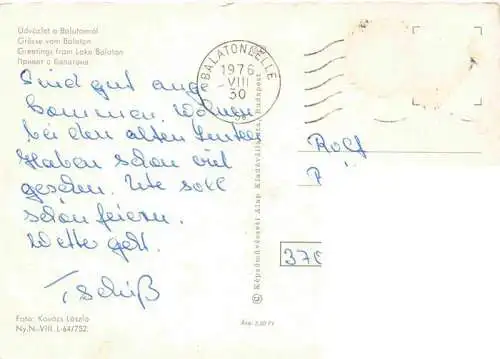 Üdvözlet a Balatonról
Grüsse vom Balaton
Greetings from Lake Balaton
Привет с Балатона
Sind gut ange
kommen. Wohnen
bei den alten Leuten
Haben schon viel
gesehen. Ute soll
schön feiern.
Wetter geht.
Tschüß
Foto: Kovács László
Ny.N.-VIII. L-64/752.
BALATONLELLE
1976
VIII
30
Képzőművészeti Alap Kiadóvállalata, Budapest
Ára: 2,20 Ft
Rolf
P
37